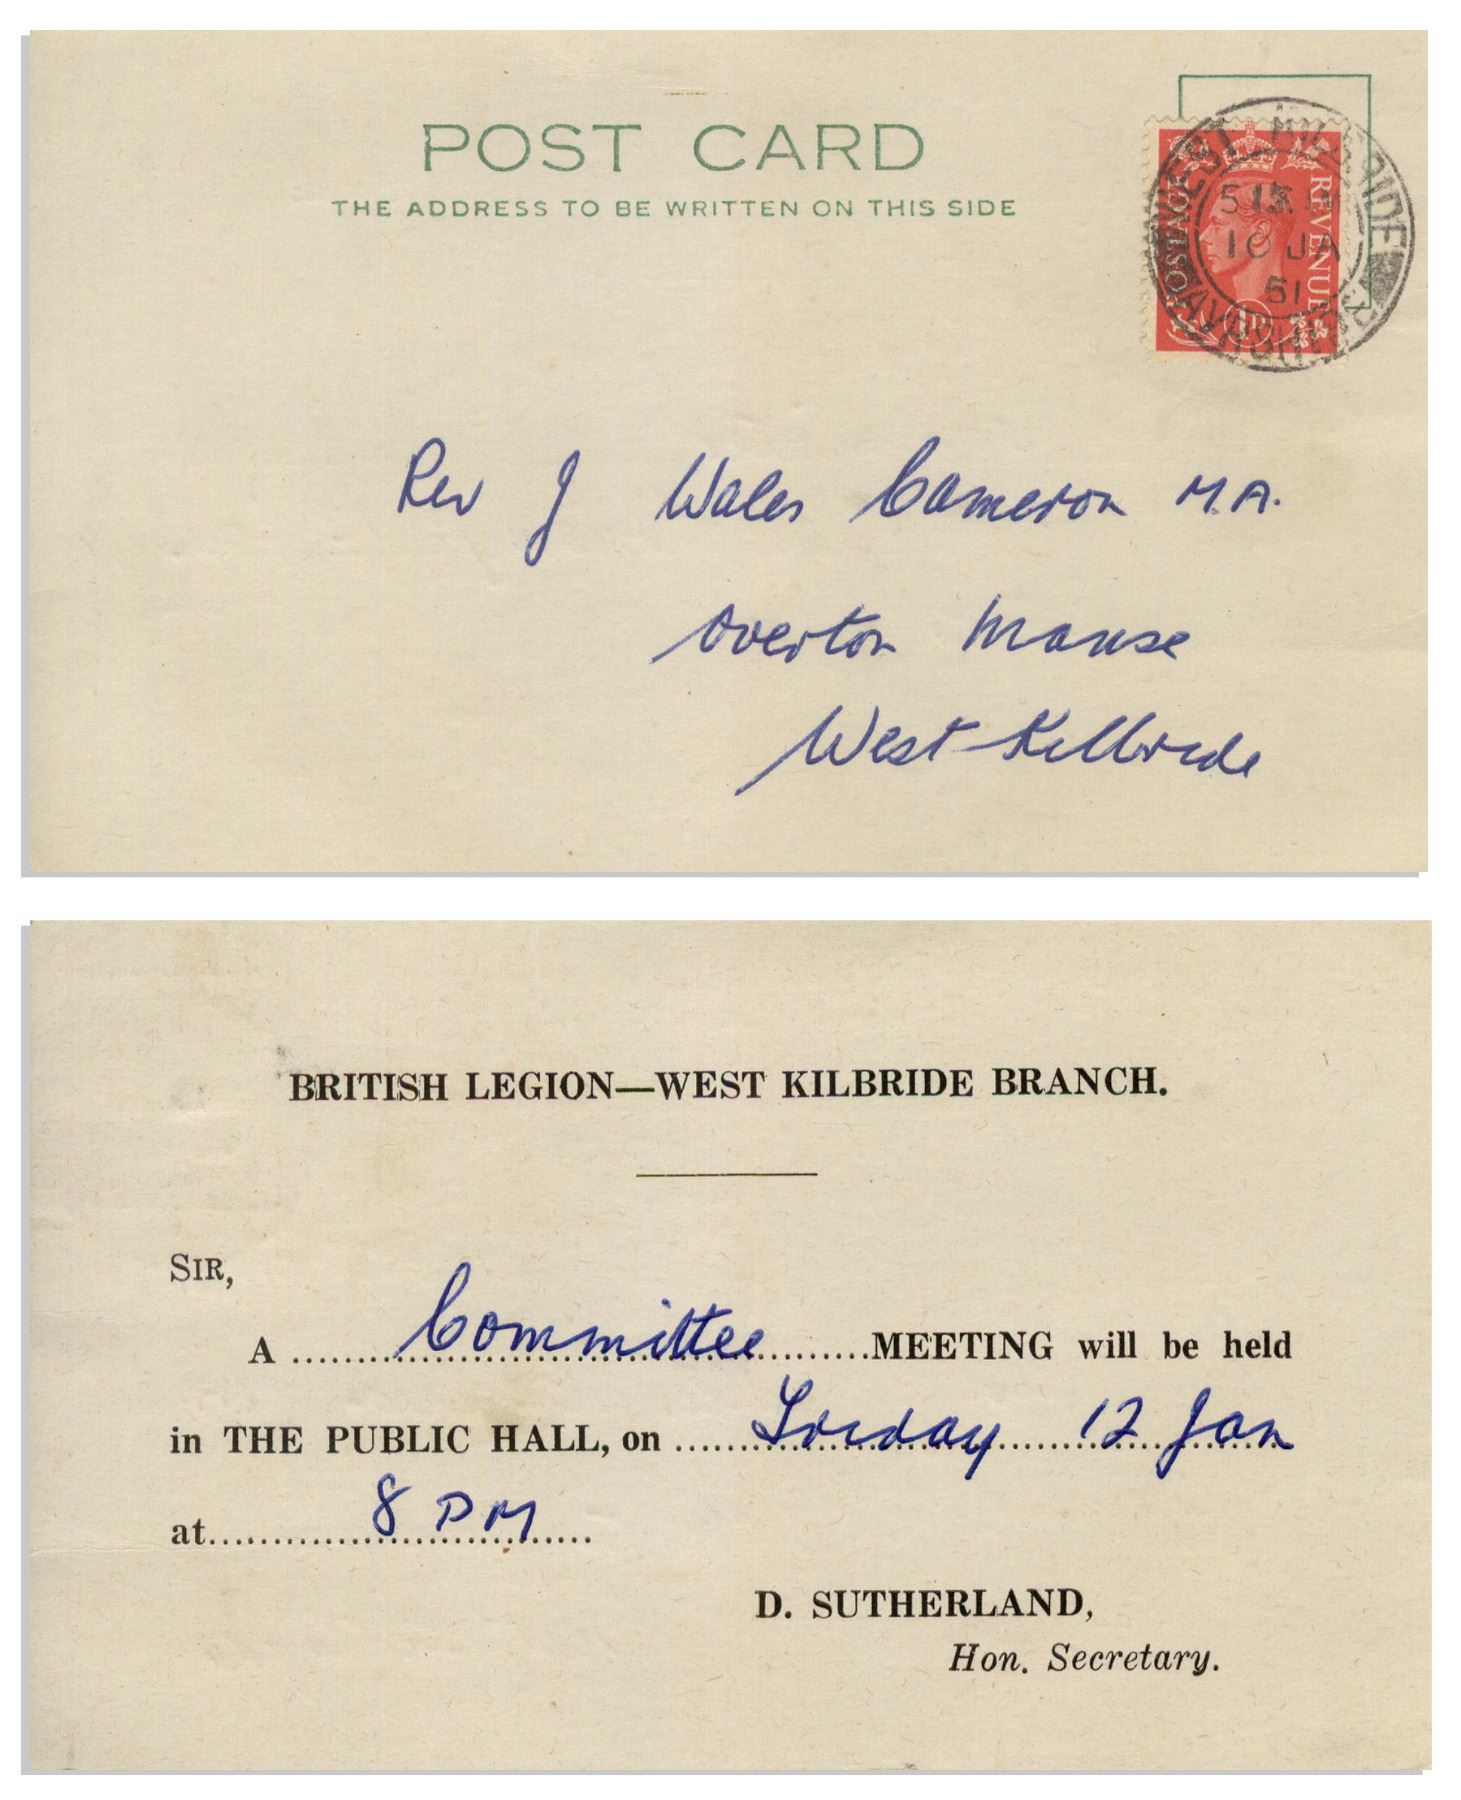 POST CARD
THE ADDRESS TO BE WRITTEN ON THIS SIDE
POSTAGE REVENUE
1D
WEST KILBRIDE
5 15
10 JA
51
AYRSHIRE
Rev J Wales Cameron M.A.
Overton Manse
West Kilbride
BRITISH LEGION—WEST KILBRIDE BRANCH.
SIR,
A ......Committee.........MEETING will be held
in THE PUBLIC HALL, on ......Friday......12 Jan
at............8 PM......
D. SUTHERLAND,
Hon. Secretary.